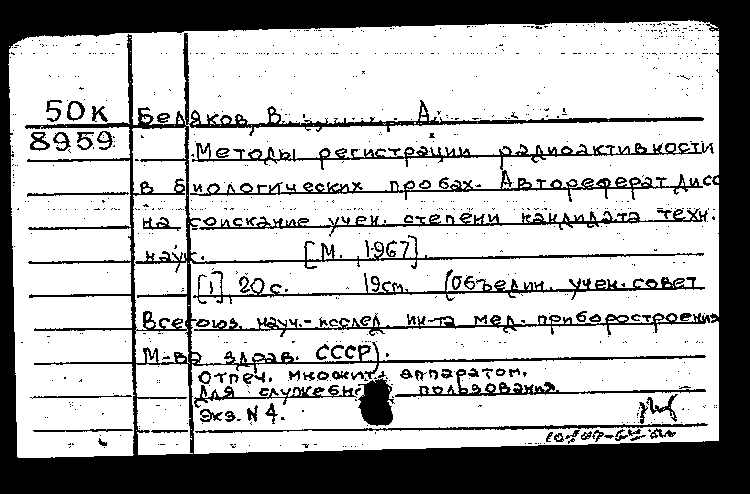 50к Беляков, В. А.
8959
Методы регистрации радиоактивности
в биологических пробах. Автореферат дисс
на соискание учен. степени кандидата техн.
наук. [М., 1967].
[1], 20 с. 19 см. (Объедин. учен. совет
Всесоюз. науч.-исслед. ин-та мед. приборостроения
М-ва здрав. СССР).
Отпеч. множит. аппаратом.
Для служебн пользования.
Экз. N 4.